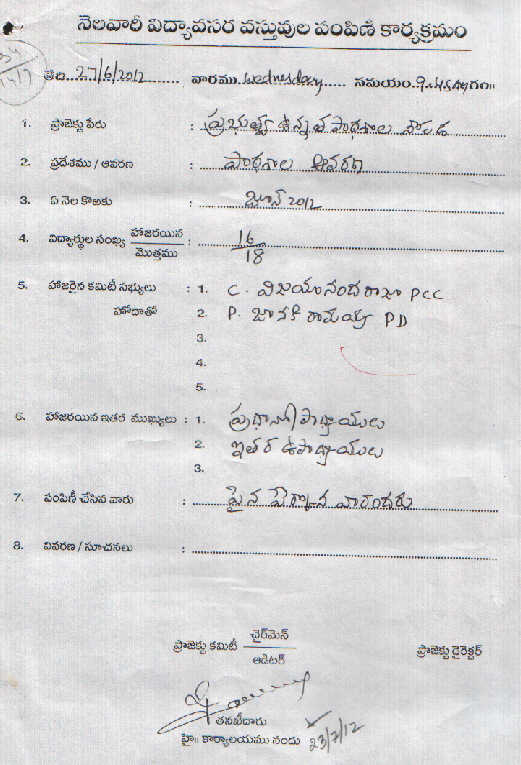 నెలవారీ విద్యావసర వస్తువుల పంపిణీ కార్యక్రమం
తేది. 27/6/2012 వారము Wednesday సమయం. 9.45AM గం॥
1. ప్రాజెక్టు పేరు : ప్రభుత్వ ఉన్నత పాఠశాల
2. ప్రదేశము / ఆవరణ : పాఠశాల ఆవరణ
3. ఏ నెల కొఱకు : జూన్ 2012
4. విద్యార్థుల సంఖ్య హాజరయిన / మొత్తము : 16/18
5. హాజరైన కమిటీ సభ్యులు : 1. C. విజయానందరాజు PCC
హోదాతో 2. P. జానకి రామయ్య PD
3.
4.
5.
6. హాజరయిన ఇతర ముఖ్యులు : 1. ప్రధానోపాధ్యాయులు
2. ఇతర ఉపాధ్యాయులు
3.
7. పంపిణీ చేసిన వారు : పైన పేర్కొన్న వారందరు
8. వివరణ / సూచనలు :
ప్రాజెక్టు కమిటీ ఛైర్‌మెన్ / ఆడిటర్ ప్రాజెక్టు డైరెక్టర్
తనఖీదారు
హై॥ కార్యాలయము నందు 23/7/12